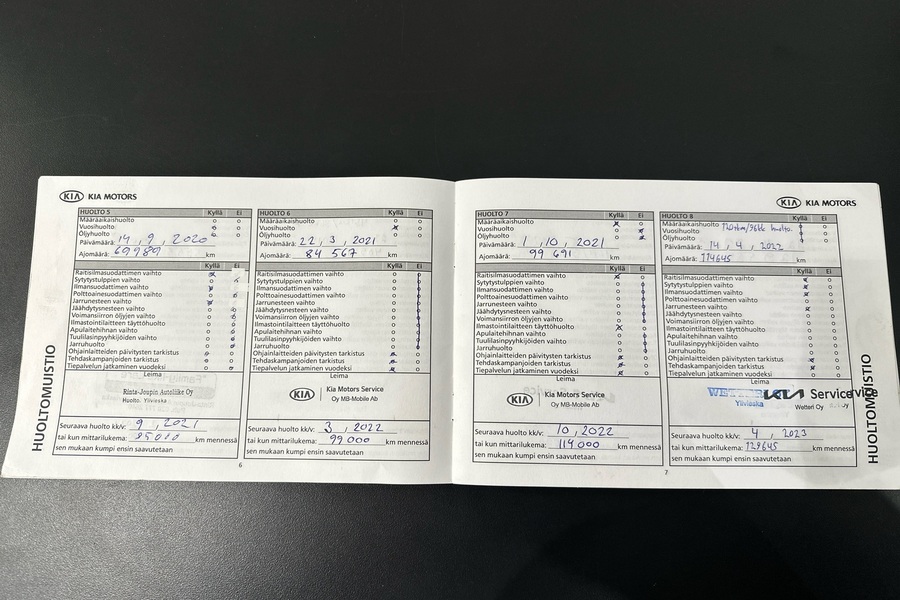 KIA KIA MOTORS
HUOLTO 5 Kyllä Ei
Määräaikaishuolto
Vuosihuolto
Öljyhuolto
Päivämäärä: 14, 9, 2020
Ajomäärä: 69989 km
Kyllä Ei
Raitisilmasuodattimen vaihto
Sytytystulppien vaihto
Ilmansuodattimen vaihto
Polttoainesuodattimen vaihto
Jarrunesteen vaihto
Jäähdytysnesteen vaihto
Voimansiirron öljyjen vaihto
Ilmastointilaitteen täyttöhuolto
Apulaitehihnan vaihto
Tuulilasinpyyhkijöiden vaihto
Jarruhuolto
Ohjainlaitteiden päivitysten tarkistus
Tehdaskampanjoiden tarkistus
Tiepalvelun jatkaminen vuodeksi
Leima
Rinta-Joupin Autoliike Oy
Huolto, Ylivieska
Seuraava huolto kk/v: 9, 2021
tai kun mittarilukema: km mennessä
sen mukaan kumpi ensin saavutetaan
HUOLTO 6 Kyllä Ei
Määräaikaishuolto
Vuosihuolto
Öljyhuolto
Päivämäärä: 22, 3, 2021
Ajomäärä: 84 567 km
Kyllä Ei
Raitisilmasuodattimen vaihto
Sytytystulppien vaihto
Ilmansuodattimen vaihto
Polttoainesuodattimen vaihto
Jarrunesteen vaihto
Jäähdytysnesteen vaihto
Voimansiirron öljyjen vaihto
Ilmastointilaitteen täyttöhuolto
Apulaitehihnan vaihto
Tuulilasinpyyhkijöiden vaihto
Jarruhuolto
Ohjainlaitteiden päivitysten tarkistus
Tehdaskampanjoiden tarkistus
Tiepalvelun jatkaminen vuodeksi
Leima
KIA Kia Motors Service
Oy MB-Mobile Ab
Seuraava huolto kk/v: 3, 2022
tai kun mittarilukema: 99 000 km mennessä
sen mukaan kumpi ensin saavutetaan
HUOLTOMUISTIO
6
KIA KIA MOTORS
HUOLTO 7 Kyllä Ei
Määräaikaishuolto
Vuosihuolto
Öljyhuolto
Päivämäärä: 1, 10, 2021
Ajomäärä: 99 691 km
Kyllä Ei
Raitisilmasuodattimen vaihto
Sytytystulppien vaihto
Ilmansuodattimen vaihto
Polttoainesuodattimen vaihto
Jarrunesteen vaihto
Jäähdytysnesteen vaihto
Voimansiirron öljyjen vaihto
Ilmastointilaitteen täyttöhuolto
Apulaitehihnan vaihto
Tuulilasinpyyhkijöiden vaihto
Jarruhuolto
Ohjainlaitteiden päivitysten tarkistus
Tehdaskampanjoiden tarkistus
Tiepalvelun jatkaminen vuodeksi
Leima
KIA Kia Motors Service
Oy MB-Mobile Ab
Seuraava huolto kk/v: 10, 2022
tai kun mittarilukema: 114 000 km mennessä
sen mukaan kumpi ensin saavutetaan
HUOLTO 8 Kyllä Ei
Määräaikaishuolto 120tkm/96kk huolto.
Vuosihuolto
Öljyhuolto
Päivämäärä: 14, 4, 2022
Ajomäärä: 114645 km
Kyllä Ei
Raitisilmasuodattimen vaihto
Sytytystulppien vaihto
Ilmansuodattimen vaihto
Polttoainesuodattimen vaihto
Jarrunesteen vaihto
Jäähdytysnesteen vaihto
Voimansiirron öljyjen vaihto
Ilmastointilaitteen täyttöhuolto
Apulaitehihnan vaihto
Tuulilasinpyyhkijöiden vaihto
Jarruhuolto
Ohjainlaitteiden päivitysten tarkistus
Tehdaskampanjoiden tarkistus
Tiepalvelun jatkaminen vuodeksi
Leima
WETTERI KIA Service
Ylivieska Wetteri Oy
Seuraava huolto kk/v: 4, 2023
tai kun mittarilukema: 129645 km mennessä
sen mukaan kumpi ensin saavutetaan
HUOLTOMUISTIO
7